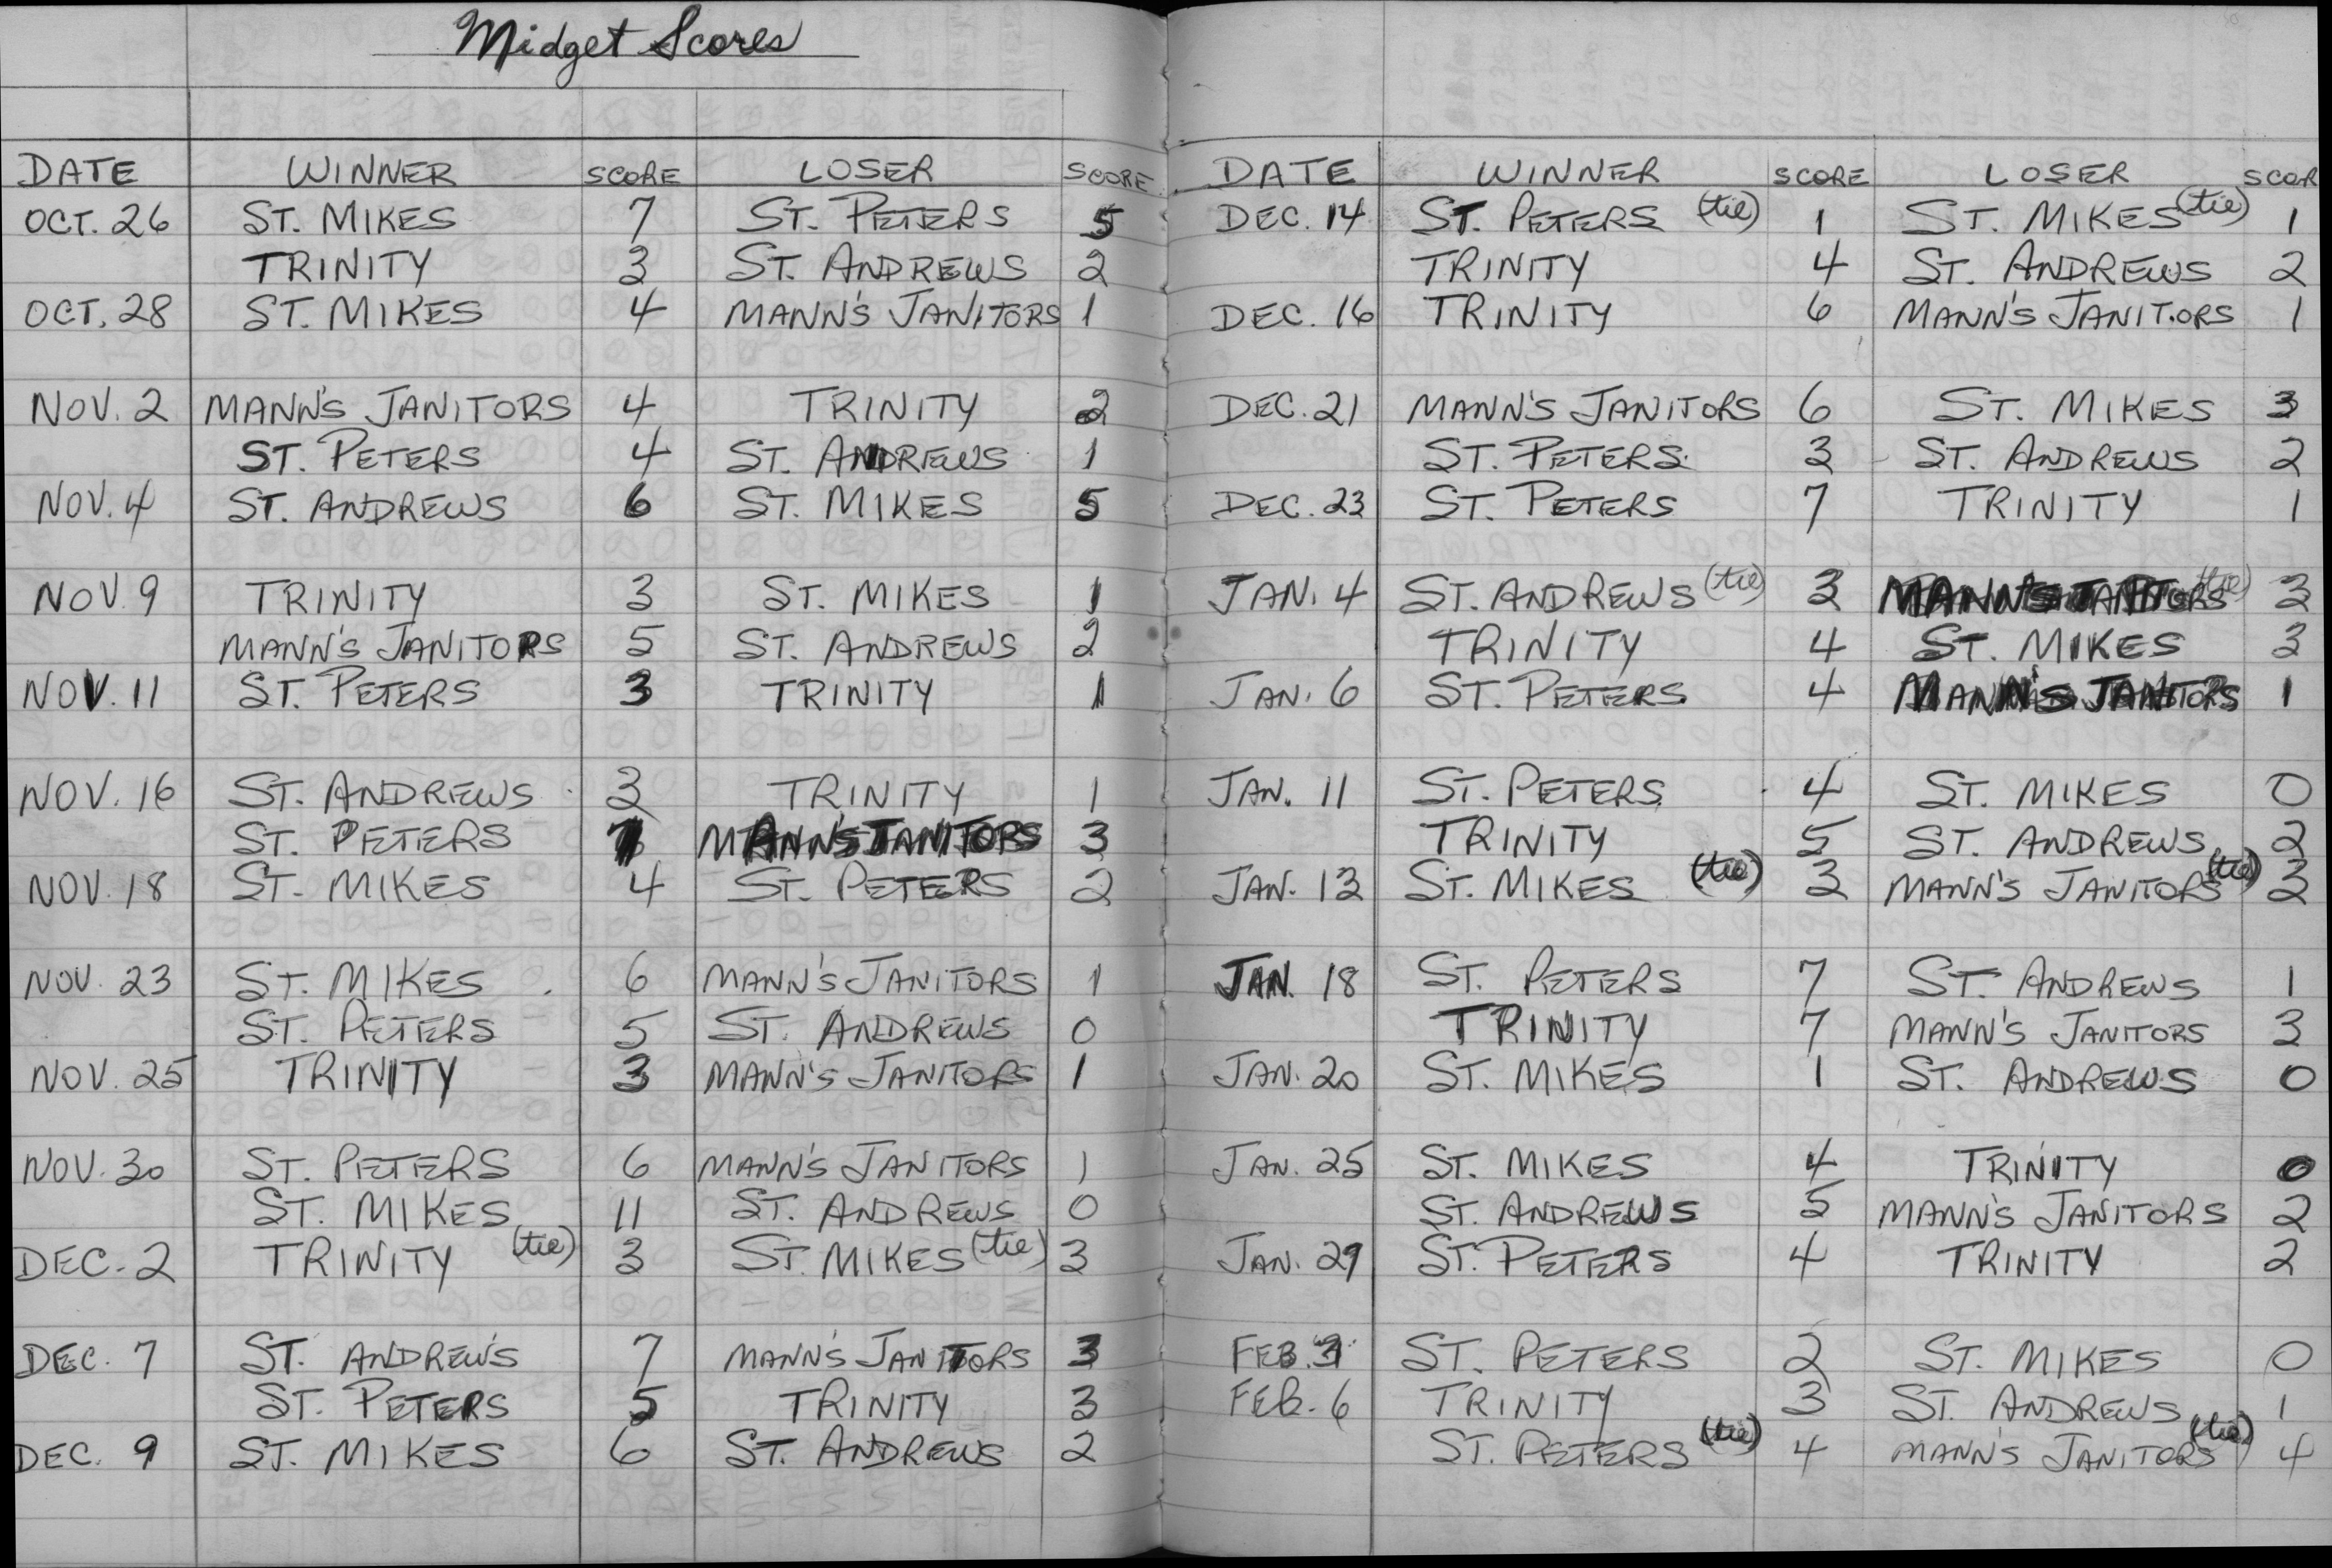 Midget Scores
DATE WINNER SCORE LOSER SCORE
OCT. 26 ST. MIKES 7 ST. PETERS 5
TRINITY 3 ST. ANDREWS 2
OCT. 28 ST. MIKES 4 MANN'S JANITORS 1
NOV. 2 MANN'S JANITORS 4 TRINITY 2
ST. PETERS 4 ST. ANDREWS 1
NOV. 4 ST. ANDREWS 6 ST. MIKES 5
NOV. 9 TRINITY 3 ST. MIKES 1
MANN'S JANITORS 5 ST. ANDREWS 2
NOV. 11 ST. PETERS 3 TRINITY 1
NOV. 16 ST. ANDREWS 3 TRINITY 1
ST. PETERS 7 MANN'S JANITORS 3
NOV. 18 ST. MIKES 4 ST. PETERS 2
NOV. 23 ST. MIKES 6 MANN'S JANITORS 1
ST. PETERS 5 ST. ANDREWS 0
NOV. 25 TRINITY 3 MANN'S JANITORS 1
NOV. 30 ST. PETERS 6 MANN'S JANITORS 1
ST. MIKES 11 ST. ANDREWS 0
DEC. 2 TRINITY (tie) 3 ST. MIKES (tie) 3
DEC. 7 ST. ANDREW'S 7 MANN'S JANITORS 3
ST. PETERS 5 TRINITY 3
DEC. 9 ST. MIKES 6 ST. ANDREWS 2
DATE WINNER SCORE LOSER SCOR
DEC. 14 ST. PETERS (tie) 1 ST. MIKES (tie) 1
TRINITY 4 ST. ANDREWS 2
DEC. 16 TRINITY 6 MANN'S JANITORS 1
DEC. 21 MANN'S JANITORS 6 ST. MIKES 3
ST. PETERS 3 ST. ANDREWS 2
DEC. 23 ST. PETERS 7 TRINITY 1
JAN. 4 ST. ANDREWS (tie) 3 MANN'S JANITORS (tie) 3
TRINITY 4 ST. MIKES 3
JAN. 6 ST. PETERS 4 MANN'S JANITORS 1
JAN. 11 ST. PETERS 4 ST. MIKES 0
TRINITY 5 ST. ANDREWS 2
JAN. 13 ST. MIKES (tie) 3 MANN'S JANITORS (tie) 3
JAN. 18 ST. PETERS 7 ST. ANDREWS 1
TRINITY 7 MANN'S JANITORS 3
JAN. 20 ST. MIKES 1 ST. ANDREWS 0
JAN. 25 ST. MIKES 4 TRINITY 0
ST. ANDREWS 5 MANN'S JANITORS 2
JAN. 29 ST. PETERS 4 TRINITY 2
FEB. ST. PETERS 2 ST. MIKES 0
FEB. 6 TRINITY 3 ST. ANDREWS 1
ST. PETERS (tie) 4 MANN'S JANITORS (tie) 4